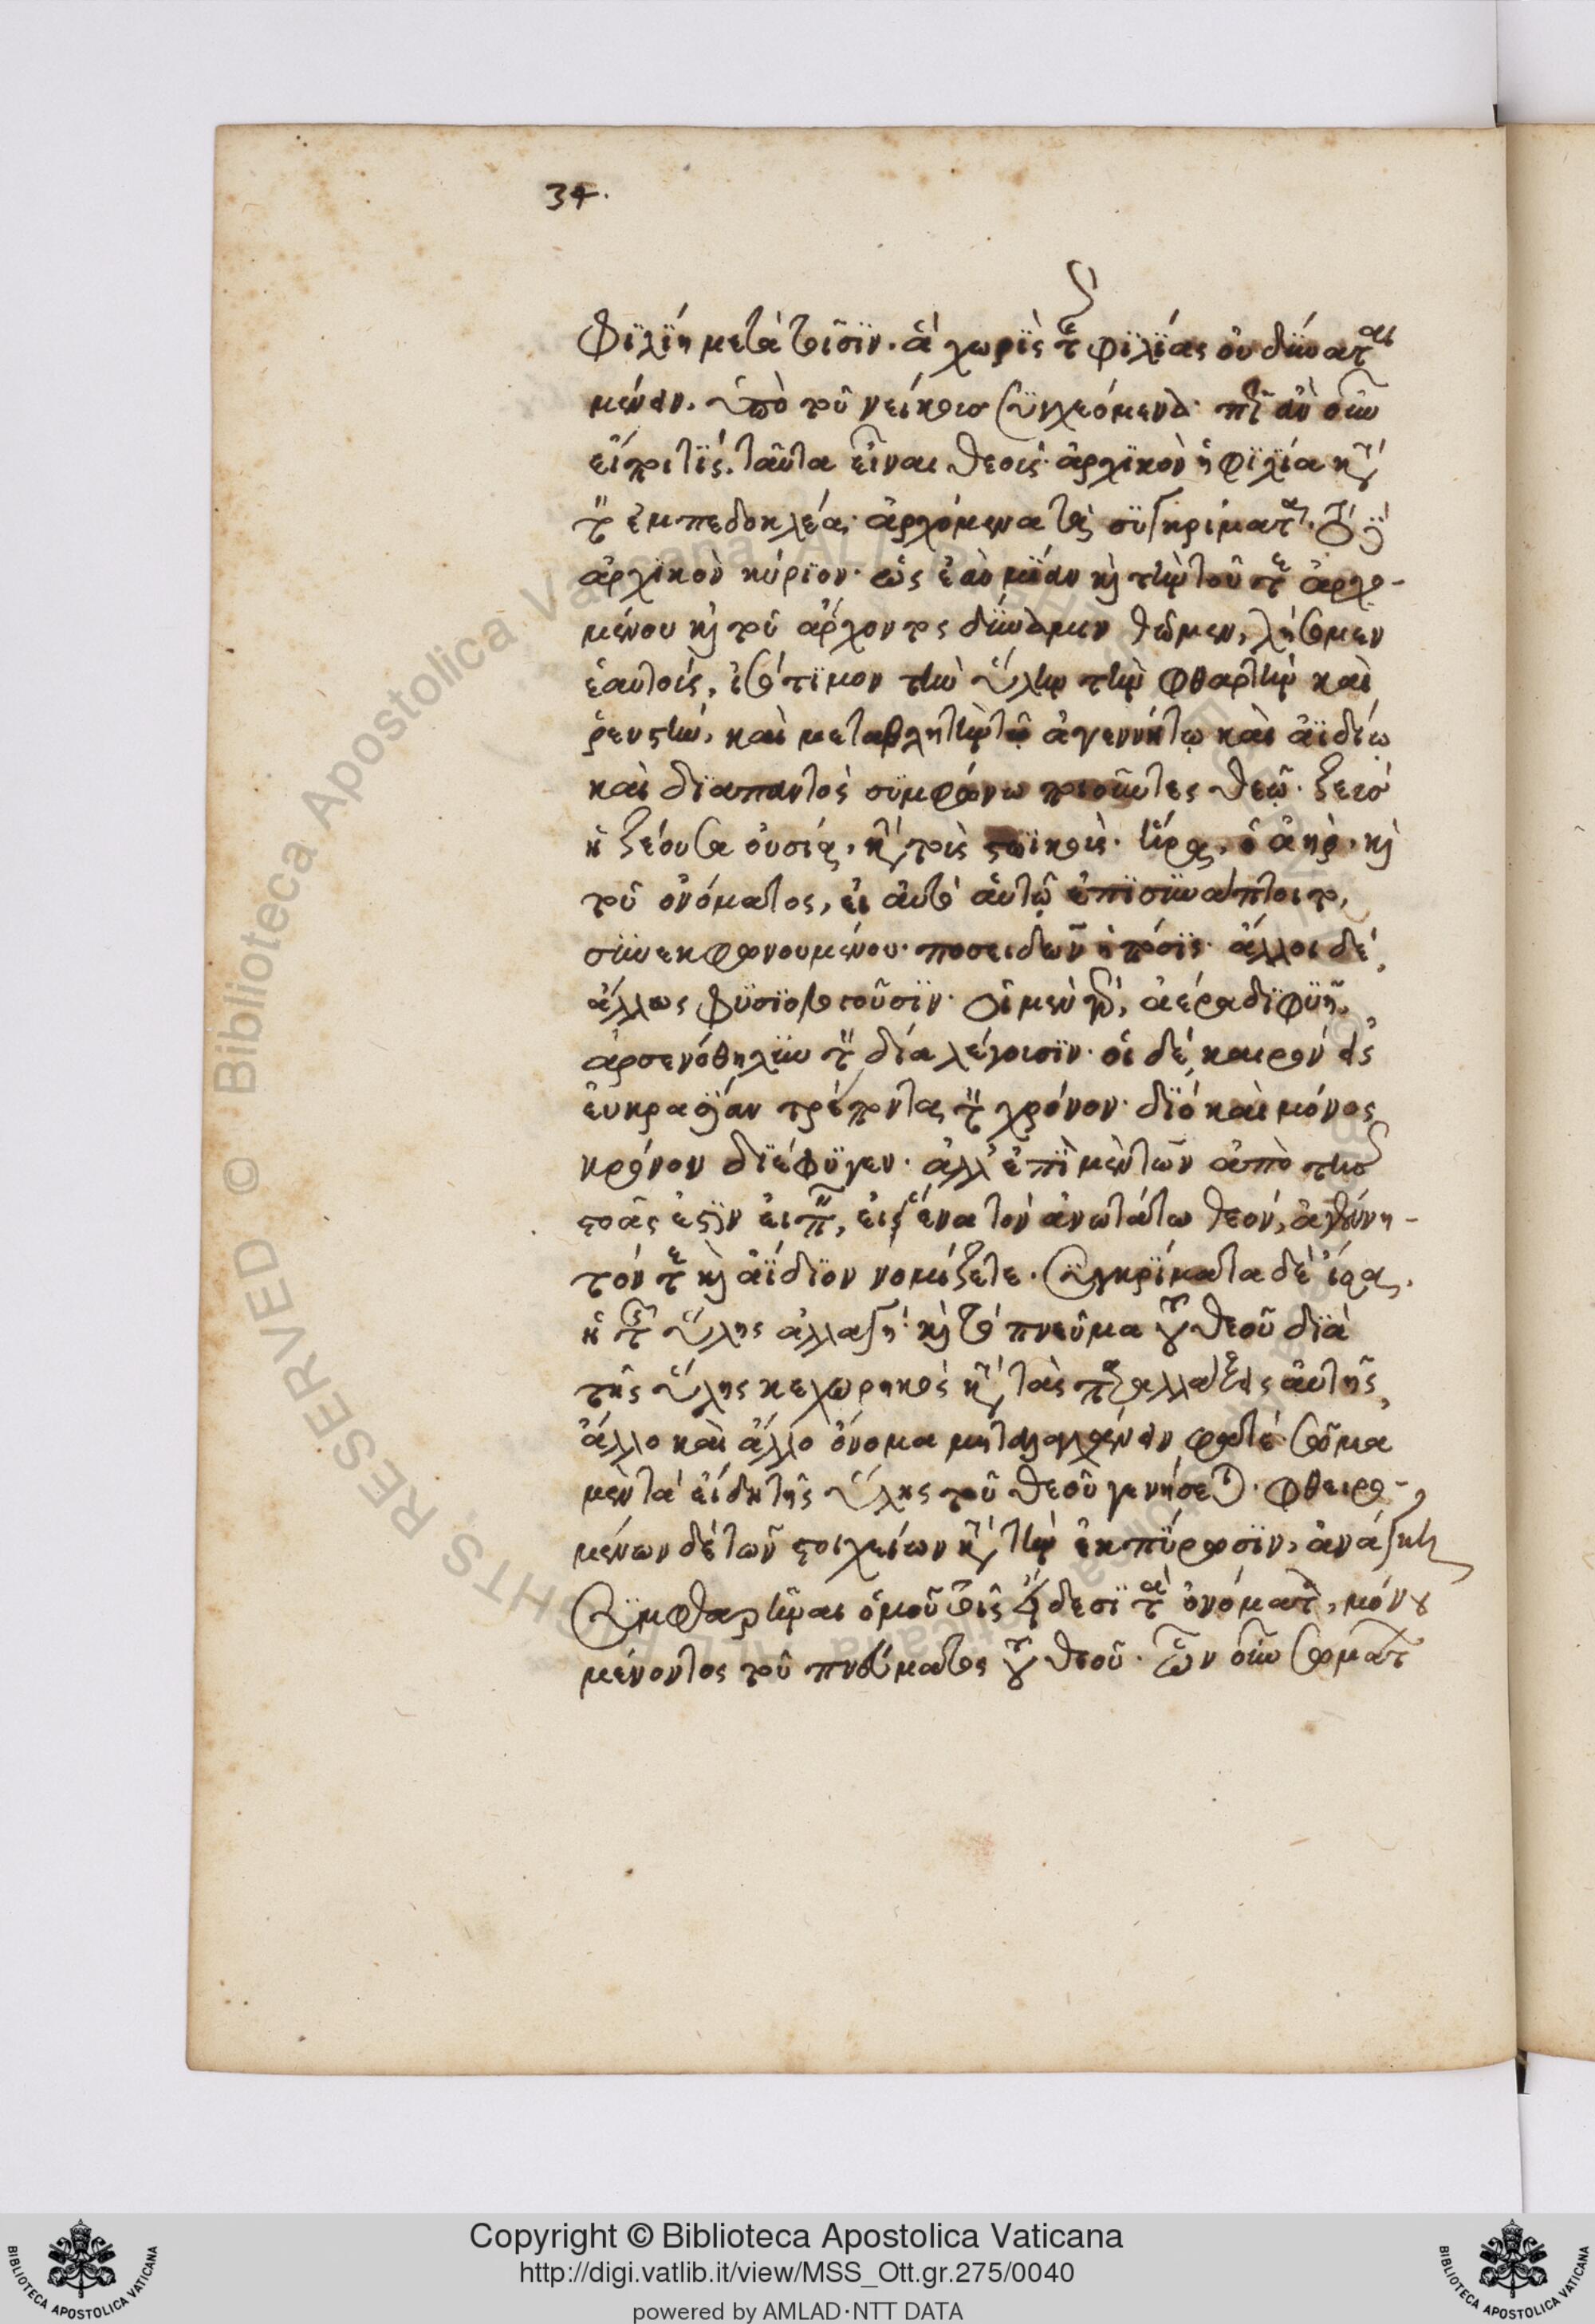 34.
φιλίη μετὰ τοῖσιν. ἃ χωρὶς τε φιλίας οὐ δύναται
μένειν. ὑπὸ τοῦ νείκους συγχεόμενα. πῶς ἂν οὖν
εἴποι τίς. ταῦτα εἶναι θεοὺς. ἀρχικὸν ἡ φιλία κατὰ
τὸν ἐμπεδοκλέα. ἀρχόμενα τὰ συγκρίματα. τὸ δὲ
ἀρχικὸν κύριον. ὡς ἐὰν μίαν καὶ τὴν τοῦ τε ἀρχο-
μένου καὶ τοῦ ἄρχοντος δύναμιν θῶμεν, λήσομεν
ἑαυτοὺς, ἰσότιμον τὴν ὕλην τὴν φθαρτὴν καὶ
ῥευστὴν, καὶ μεταβλητὴν τῷ ἀγεννήτῳ καὶ ἀϊδίῳ
καὶ διαπαντὸς συμφώνῳ ποιοῦντες θεῷ. ζεὺς
ἡ ζέουσα οὐσία, κατὰ τοὺς στωικοὺς. ἥρα, ὁ ἀὴρ. καὶ
τοῦ ὀνόματος, εἰ αὐτὸ αὑτῷ ἐπισυνάπτοιτο,
συνεκφωνουμένου. ποσειδῶν ἡ πόσις. ἄλλοι δὲ
ἄλλως φυσιολογοῦσιν. οἱ μὲν γὰρ, ἀέρα διφυῆ
ἀρσενόθηλυν τὸν δία λέγουσιν. οἱ δὲ καιρὸν εἰς
εὐκρασίαν τρέποντα τὸν χρόνον. διὸ καὶ μόνος
κρόνον διέφυγεν. ἀλλ' ἐπὶ μὲν τῶν ἀπὸ τῆς
στοᾶς ἔστιν εἰπεῖν, εἰ ἕνα τὸν ἀνωτάτω θεὸν, ἀγέννη-
τόν τε καὶ ἀΐδιον νομίζετε. συγκρίματα δὲ εἰς ἃ
ἡ τῆς ὕλης ἀλλαγὴ. καὶ τὸ πνεῦμα τοῦ θεοῦ διὰ
τῆς ὕλης κεχωρηκὸς κατὰ τὰς παραλλάξεις αὐτῆς
ἄλλο καὶ ἄλλο ὄνομα μεταλαγχάνειν φατὲ σῶμα
μὲν τὰ εἴδη τῆς ὕλης τοῦ θεοῦ γενήσεται. φθειρο-
μένων δὲ τῶν στοιχείων κατὰ τὴν ἐκπύρωσιν, ἀνάγκη
συμφθαρῆναι ὁμοῦ τοῖς εἴδεσι τὰ ὀνόματα, μόνου
μένοντος τοῦ πνεύματος τοῦ θεοῦ. ὧν οὖν σωμάτων
Copyright © Biblioteca Apostolica Vaticana
http://digi.vatlib.it/view/MSS_Ott.gr.275/0040
powered by AMLAD·NTT DATA